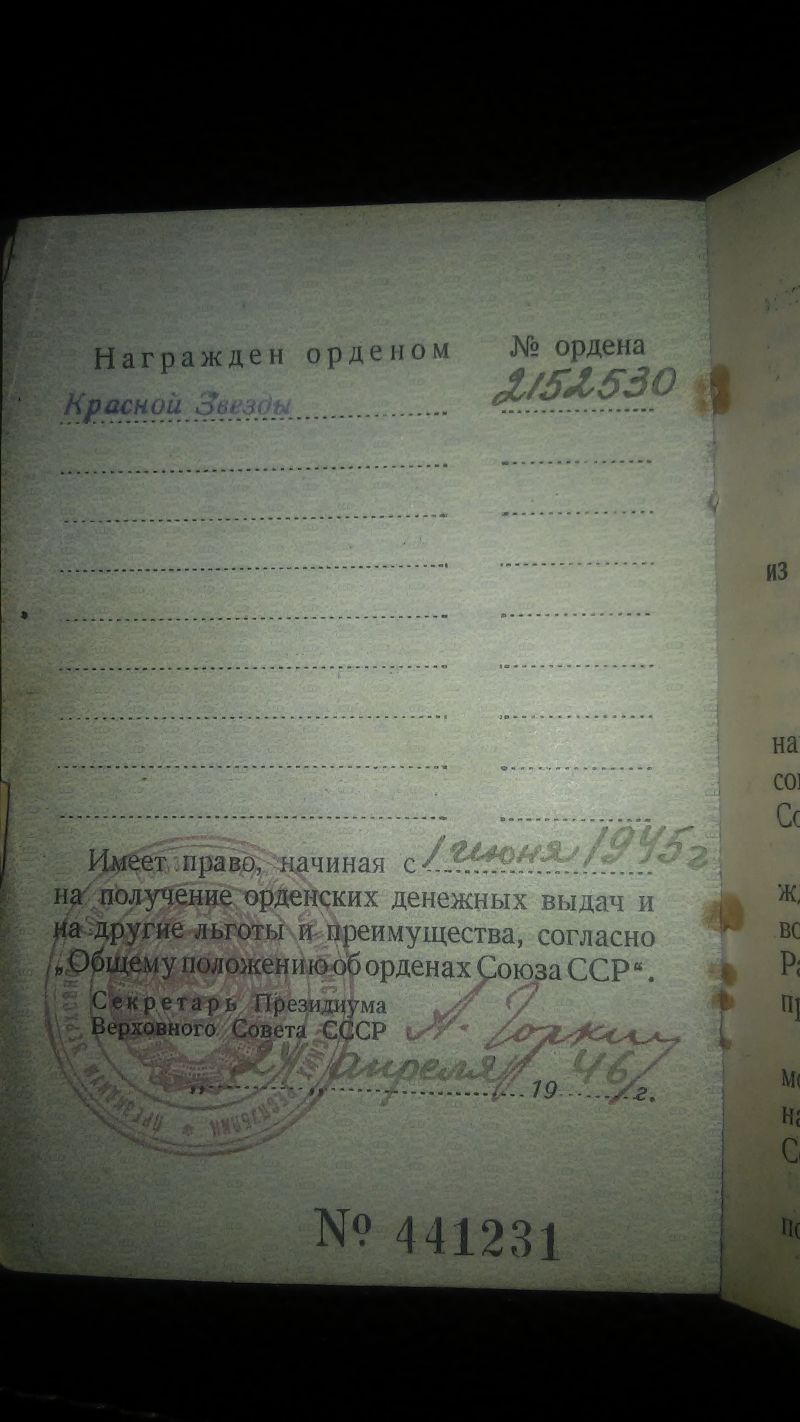 Награжден орденом № ордена
Красной Звезды 2152530
Имеет право, начиная с 1 июня 1945 г
на получение орденских денежных выдач и
на другие льготы и преимущества, согласно
„Общему положению об орденах Союза ССР“.
Секретарь Президиума
Верховного Совета СССР А. Горкин
„24„ апреля 1946 г.
№ 441231
ПРЕЗИДИУМ ВЕРХОВНОГО
из
на
Со